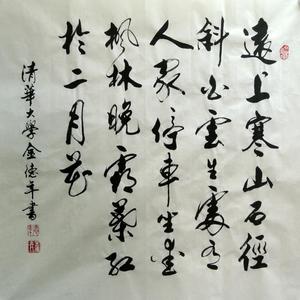 遠上寒山石徑
斜白雲生處有
人家停車坐愛
楓林晚霜葉紅
於二月花
清華大學金德年書